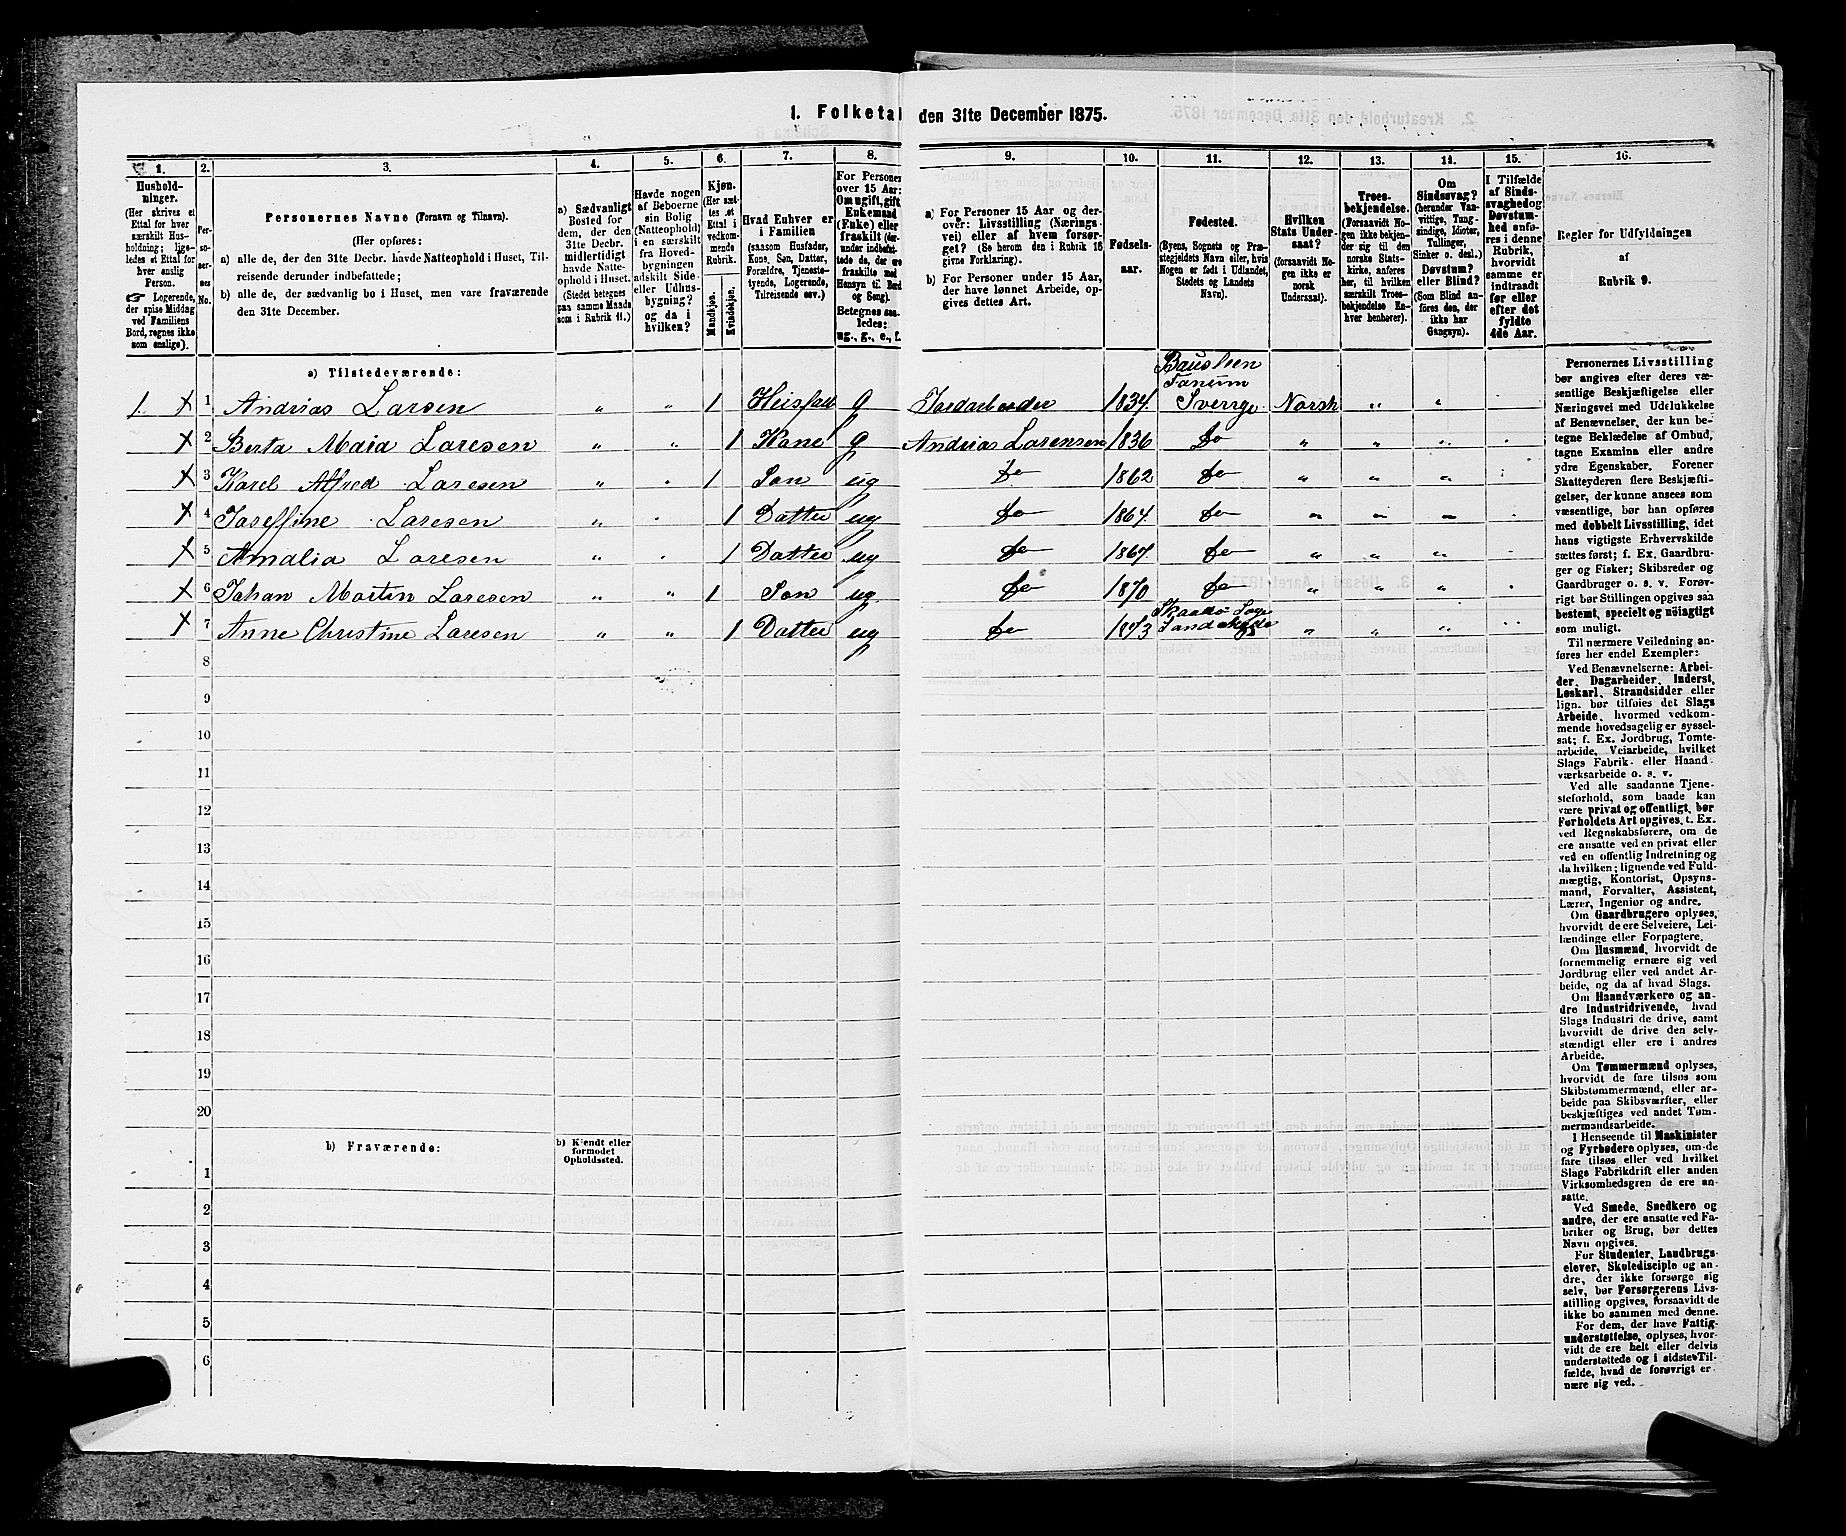 1. Folketal den 31te December 1875.
1. 2. 3. 4. 5. 6. 7. 8. 9. 10. 11. 12. 13. 14. 15. 16.
Hushold-
ninger.
(Her skrives et
Ettal for hver
særskilt Hus-
holdning; lige-
ledes et Ettal for
hver enslig
Person.
☞ Logerende,
der spise Middag
ved Familiens
Bord, regnes ikke
som enslige).
Per-
so-
ner-
nes
No.
Personernes Navne (Fornavn og Tilnavn).
(Her opføres:
a) alle de, der den 31te Decbr. havde Natteophold i Huset, Til-
reisende derunder indbefattede;
b) alle de, der sædvanlig bo i Huset, men vare fraværende
den 31te December.
a) Sædvanligt
Bosted for
dem, der den
31te Decbr.
midlertidigt
havde Natte-
ophold i Huset.
(Stedet betegnes
paa samme Maade
som i Rubrik 11.)
Havde nogen
af Beboerne
sin Bolig
(Natteophold)
i en særskilt
fra Hoved-
bygningen
adskilt Side-
eller Udhus-
bygning?
og da i
hvilken?
Kjøn.
(Her sæt-
tes et
Ettal i
vedkom-
mende
Rubrik.
Mandkjøn.
Kvindekjøn.
Hvad Enhver er
i Familien
(saasom Husfader,
Kone, Søn, Datter,
Forældre, Tjeneste-
tyende, Logerende,
Tilreisende osv.)
For Personer
over 15 Aar:
Om ugift, gift,
Enkemand
(Enke) eller
fraskilt
Betegnes saa-
ledes:
ug., g., e., f.
a) For Personer 15 Aar og der-
over: Livsstilling (Nærings-
vei) eller af hvem forsør-
get? (Se herom den i Rubrik 16
givne Forklaring).
b) For Personer under 15 Aar,
der have lønnet Arbeide, op-
gives dettes Art.
Fødsels-
aar.
Fødested.
(Byens, Sognets og Præ-
stegjeldets Navn eller, hvis
Nogen er født i Udlandet,
Stedets og Landets
Navn).
Hvilken
Stats Under-
saat?
(forsaavidt No-
gen ikke er
norsk
Undersaat).
Troes-
bekjendelse.
(Forsaavidt No-
gen ikke bekjen-
der sig til den
norske Stats-
kirke, anføres
her, til hvilken
særskilt Troes-
bekjendelse En-
hver henhører).
Om
Sindssvag?
(herunder Van-
vittige, Tung-
sindige, Idioter,
Tullinger,
Sinker o. desl.)
Døvstum?
eller Blind?
(Som Blind an-
føres den, der
ikke har
Gangsyn).
I Tilfælde
af Sinds-
svaghed og
Døvstum-
hed anfø-
res i denne
Rubrik,
hvorvidt
samme er
indtraadt
før eller
efter det
fyldte
4de Aar.
Regler for Udfyldningen
af
Rubrik 9.
a) Tilstedeværende:
Fanum
1. X 1 Andrias Larsen " " 1 g Jordarbeder 1834. Sverrge Norsk " "
X 2 Berta Maia Laresen " " 1 Kone g Andrias Larensen 1836 do " " "
X 3 Karel Alfred Laresen " " 1 Søn ug do 1862 do " " "
X 4 Joseffine Laresen " " 1 Datter ug do 1864. do " " "
X 5 Amalia Laresen " " 1 Datter ug do 1867 do " " "
X 6 Johan Martin Laresen " " 1 Søn ug. do 1870 do " " "
X 7 Anne Christine Laresen " " 1 Datter ug do 1873 " " "
8
9
10
11
12
13
14
15
16
17
18
19
20
b) Fraværende:
b) Kjendt eller
formodet
Opholdssted.
1
2
3
4
5
6
Personernes Livsstilling
bør angives efter deres væ-
sentlige Beskjæftigelse eller
Næringsvei med Udelukkelse
af Benævnelser, der kun be-
tegne Beklædelse af Ombud,
tagne Examina eller andre
ydre Egenskaber. Forener
Skatteyderen flere Beskjæfti-
gelser, der kunne ansees som
væsentlige, bør han opføres
med dobbelt Livsstilling, idet
hans vigtigste Erhvervskilde
sættes først; f. Ex. Gaardbru-
ger og Fisker; Skibsreder og
Gaardbruger o. s. v. Forøv-
rigt bør Stillingen opgives saa
bestemt, specielt og nøiagtigt
som muligt.
Til nærmere Veiledning an-
føres her endel Exempler:
Ved Benævnelserne: Arbei-
der, Dagarbeider, Inderst,
Løskarl, Strandsidder eller
lign. bør tilføies det Slags
Arbeide, hvormed vedkom-
mende hovedsagelig er syssel-
sat; f. Ex. Jordbrug, Tomte-
arbeide, Veiarbeide, hvilket
Slags Fabrik- eller Haand
værksarbeide o. s. v.
Ved alle saadanne Tjene-
steforhold, som baade kan
være privat og offentligt, bør
Forholdets Art opgives, t. Ex.
ved Regnskabsførere, om de
ere ansatte ved en privat eller
ved en offentlig Indretning og
da hvilken; lignende ved Fuld-
mægtig, Kontorist, Opsyns-
mand, Forvalter, Assistent,
Lærer, Ingeniør og andre.
Om Gaardbrugere oplyses,
hvorvidt de ere Selveiere, Lei-
lændinge eller Forpagtere.
Om Husmænd, hvorvidt de
fornemmelig ernære sig ved
Jordbrug eller ved andet Ar-
beide, og da af hvad Slags.
Om Haandværkere og an-
dre Industridrivende, hvad
Slags Industri de drive, samt
hvorvidt de drive den selv-
stændigt eller ere i andres
Arbeide.
Om Tømmermænd oplyses,
hvorvidt de fare tilsøs som
Skibstømmermænd, eller ar-
beide paa Skibsværfter, eller
beskjæftiges ved andet Tøm-
mermandsarbeide.
I Henseende til Maskinister
og Fyrbødere oplyses, om de
fare tilsøs eller ved hvilket
Slags Fabrikdrift eller anden
Virksomhedsgren de ere an-
satte.
Ved Smede, Snedkere og
andre, der ere ansatte ved Fa-
briker og Brug, bør dettes
Navn opgives.
For Studenter, Landbrugs-
elever, Skoledisciple og an-
dre, der ikke forsørge sig
selv, bør Forsørgerens Livs-
stilling opgives, forsaavidt de
ikke bo sammen med denne.
For dem, der have Fattig-
understøttelse, oplyses, hvor-
vidt de ere helt eller delvis
understøttede og i sidste Til-
fælde, hvad de forøvrigt er-
nære sig ved.